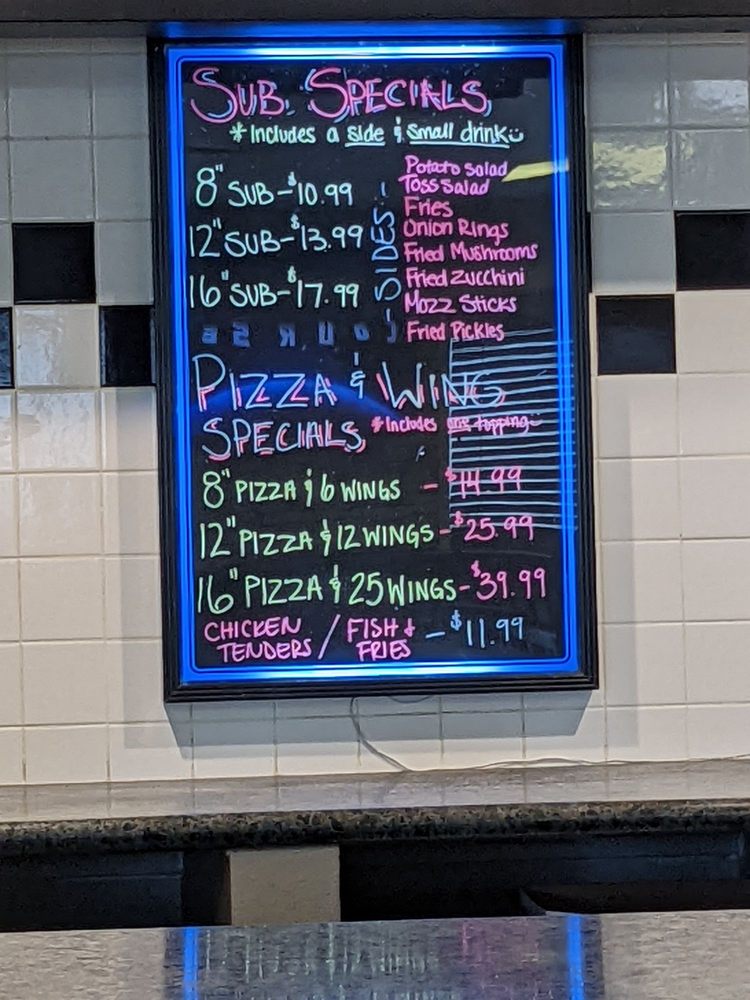 SUB SPECIALS
*Includes a side & small drink
8" SUB - $10.99
12" SUB - $13.99
16" SUB - $17.99
- SIDES -
Potato Salad
Toss Salad
Fries
Onion Rings
Fried Mushrooms
Fried Zucchini
Mozz Sticks
Fried Pickles
PIZZA & WING
SPECIALS
*Includes one topping
8" PIZZA & 6 WINGS - $14.99
12" PIZZA & 12 WINGS - $25.99
16" PIZZA & 25 WINGS - $39.99
CHICKEN TENDERS / FISH & FRIES - $11.99